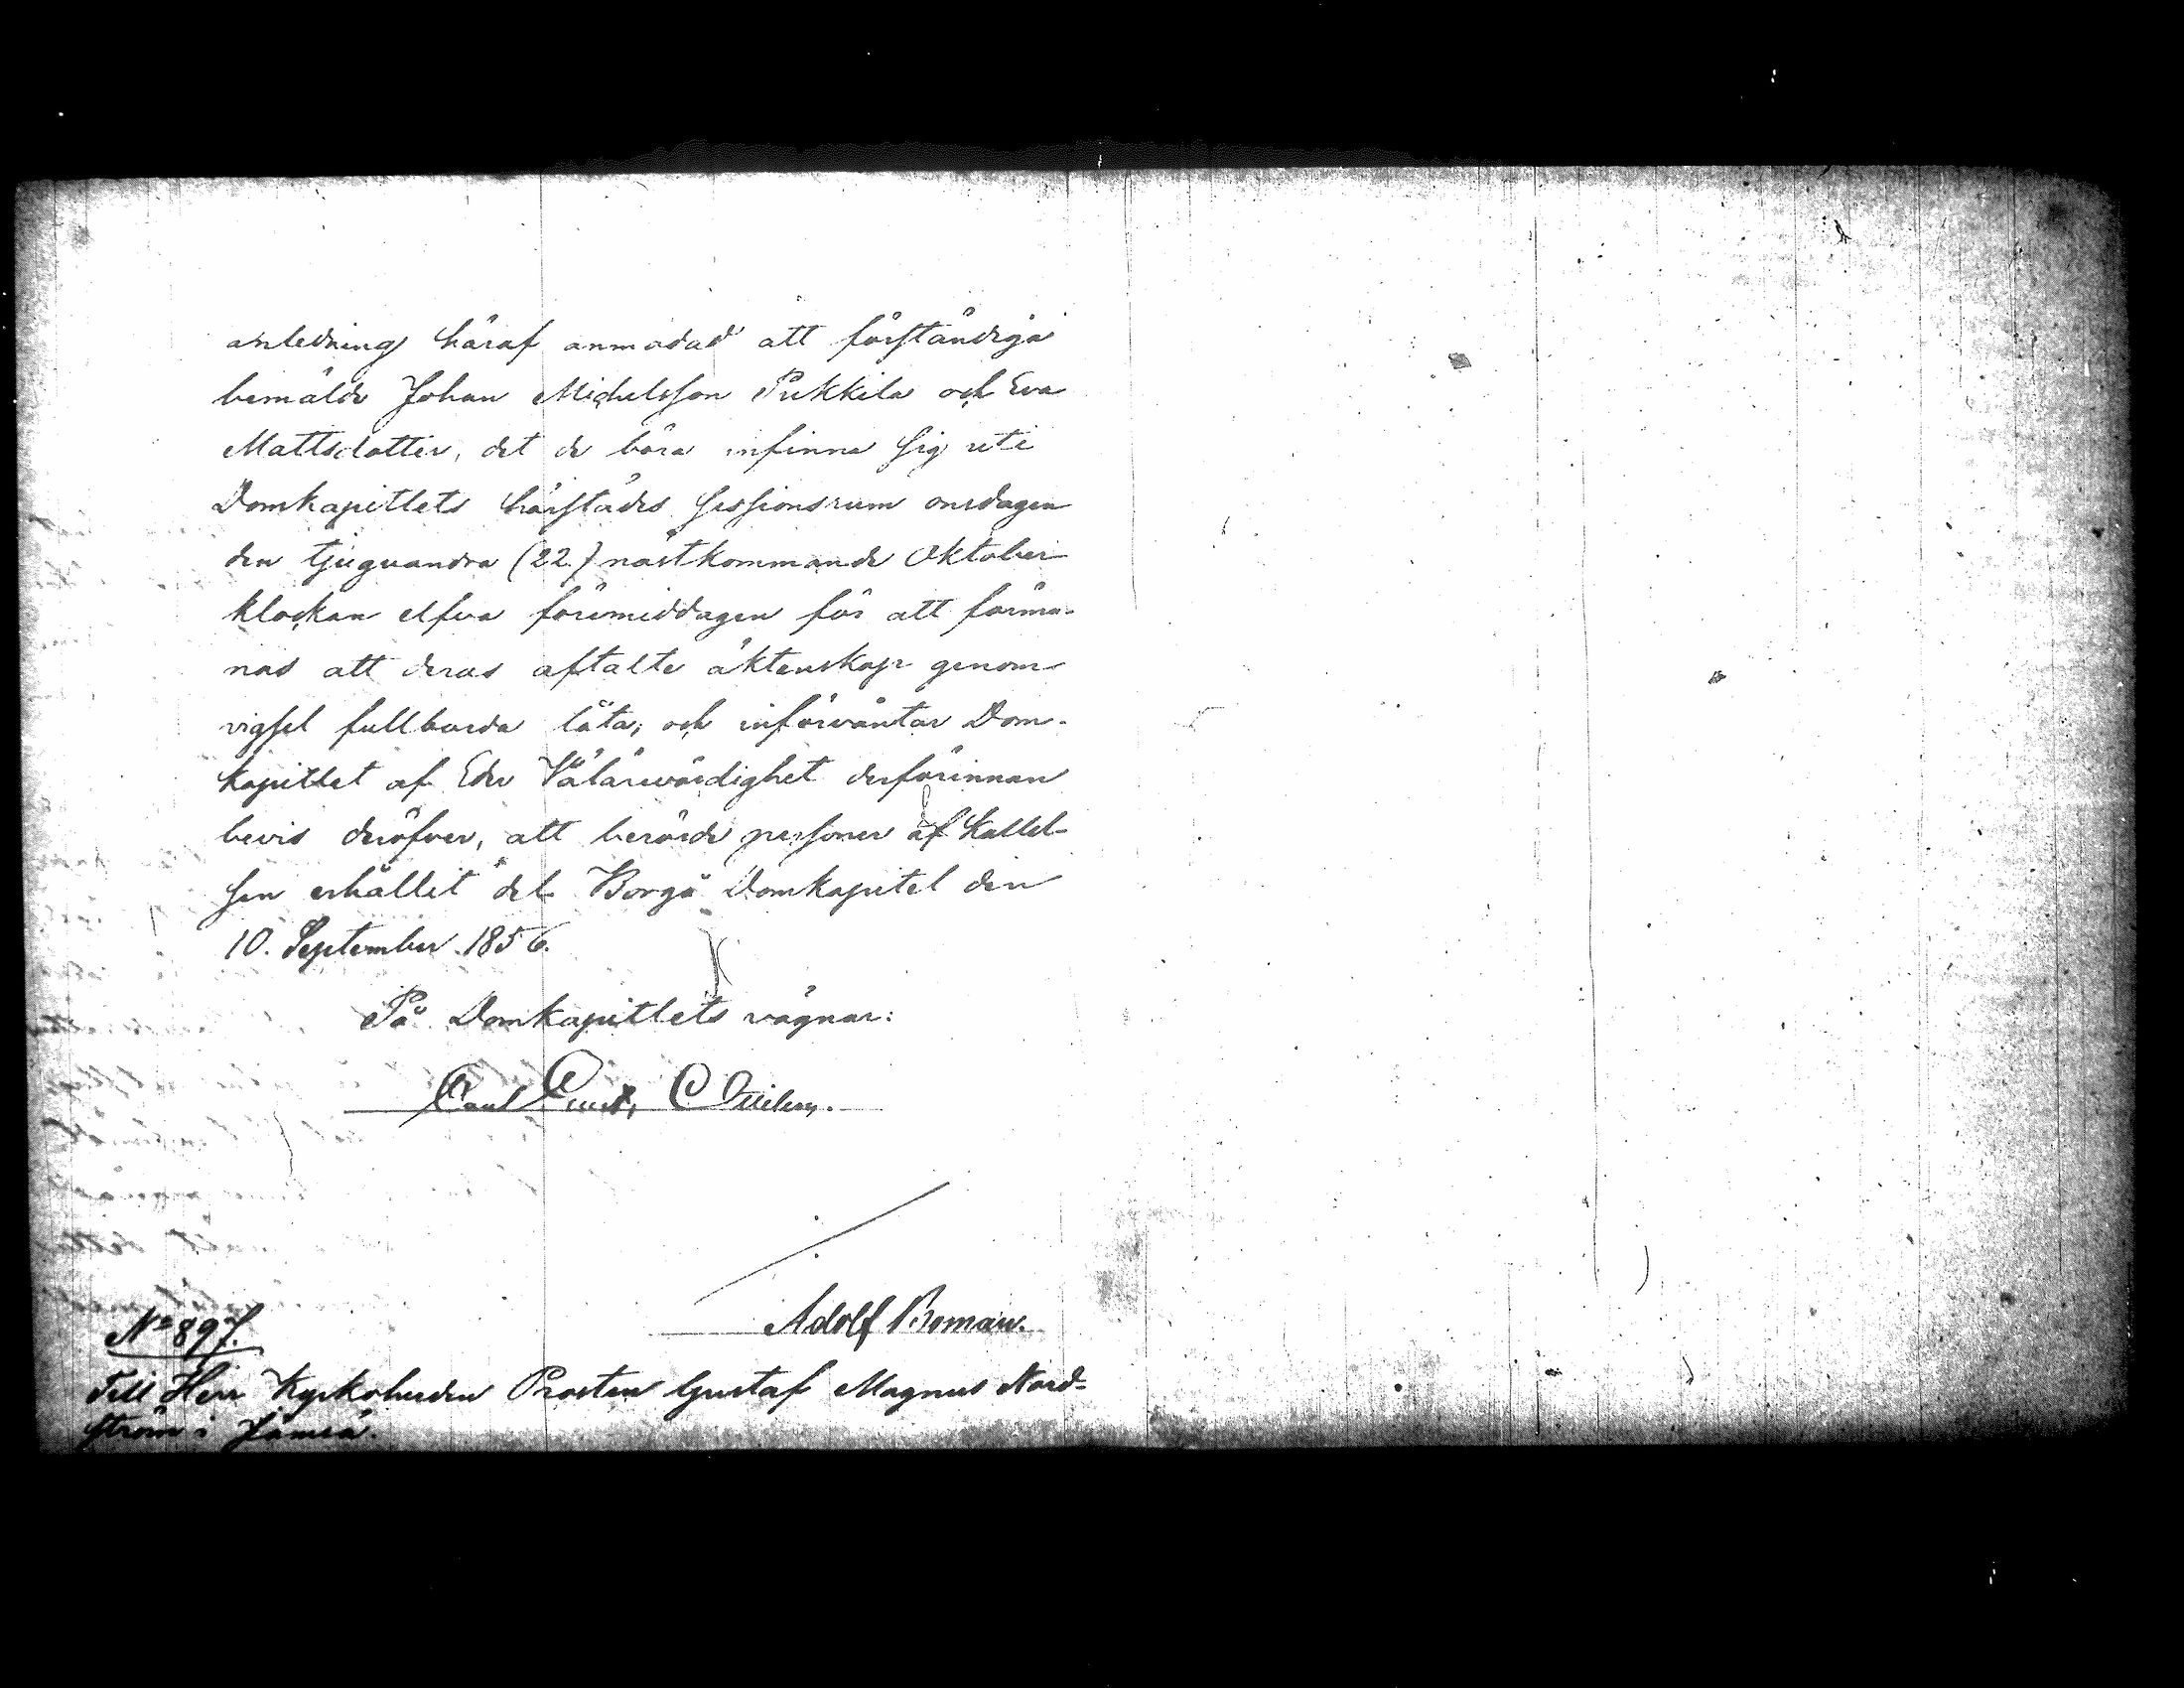 anledning häraf anmodad att förständiga
bemälde Johan Michelsson Pukkila och Eva
Mattsdotter, det de böra infinna sig uti
Domkapitlets härstädes sessionsrum onsdagen
den tjuguandra (22.) nästkommande Oktober
klockan elfva förmiddagen för att förma-
nas att deras aftalte äktenskap genom
vigsel fullborda låta; och införväntar Dom-
kapitlet af Eder Välärevördighet derförinnan
bevis deröfver, att berörde personer af kallel-
sen erhållit del. Borgå Domkapitel den
10. September 1856.
På Domkapitlets vägnar:
Carl
Adolf Boman.
No 897.
Till Herr Kyrkoherden Prosten Gustaf Magnus Nord-
ström i Jämsä.